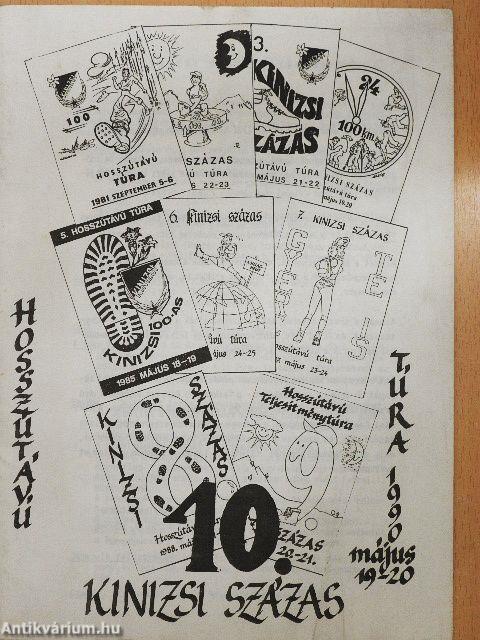 100
HOSSZÚTÁVÚ
TÚRA
1981 SZEPTEMBER 5-6
SZÁZAS
TÚRA
22-23
3.
KINIZSI
SZÁZAS
TÁVÚ TÚRA
MÁJUS 21-22
24
100 km
KINIZSI SZÁZAS
hosszútávú túra
május 19-20
5. HOSSZÚTÁVÚ TÚRA
KINIZSI 100-AS
1985 MÁJUS 18-19
6. Kinizsi százas
távú túra
május 24-25
7. KINIZSI SZÁZAS
GYERE
TE IS
hosszútávú túra
május 23-24
KINIZSI
8
SZÁZAS
Hosszútávú túra
1988. május
Hosszútávú
Teljesítménytúra
9.
SZÁZAS
20-21.
HOSSZÚTÁVÚ
TÚRA 1990
május
19-20
10.
KINIZSI SZÁZAS
Antikvárium.hu